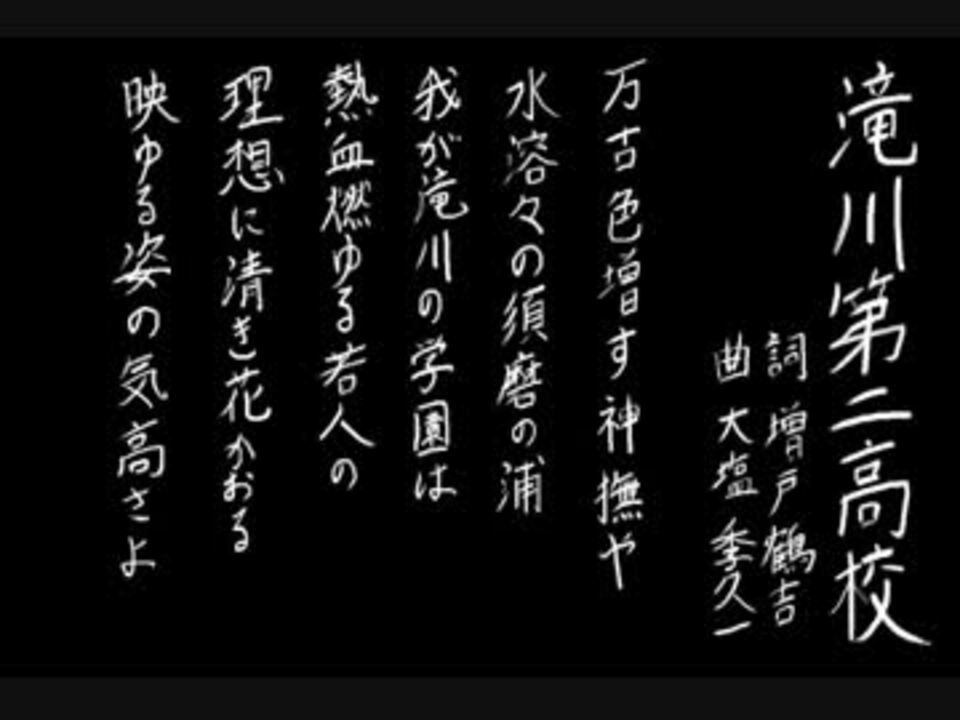 滝川第二高校
詞 増戸鶴吉
曲 大塩 季久一
万古色増す神撫や
水溶々の須磨の浦
我が滝川の学園は
熱血燃ゆる若人の
理想に清き花かおる
映ゆる姿の気高さよ